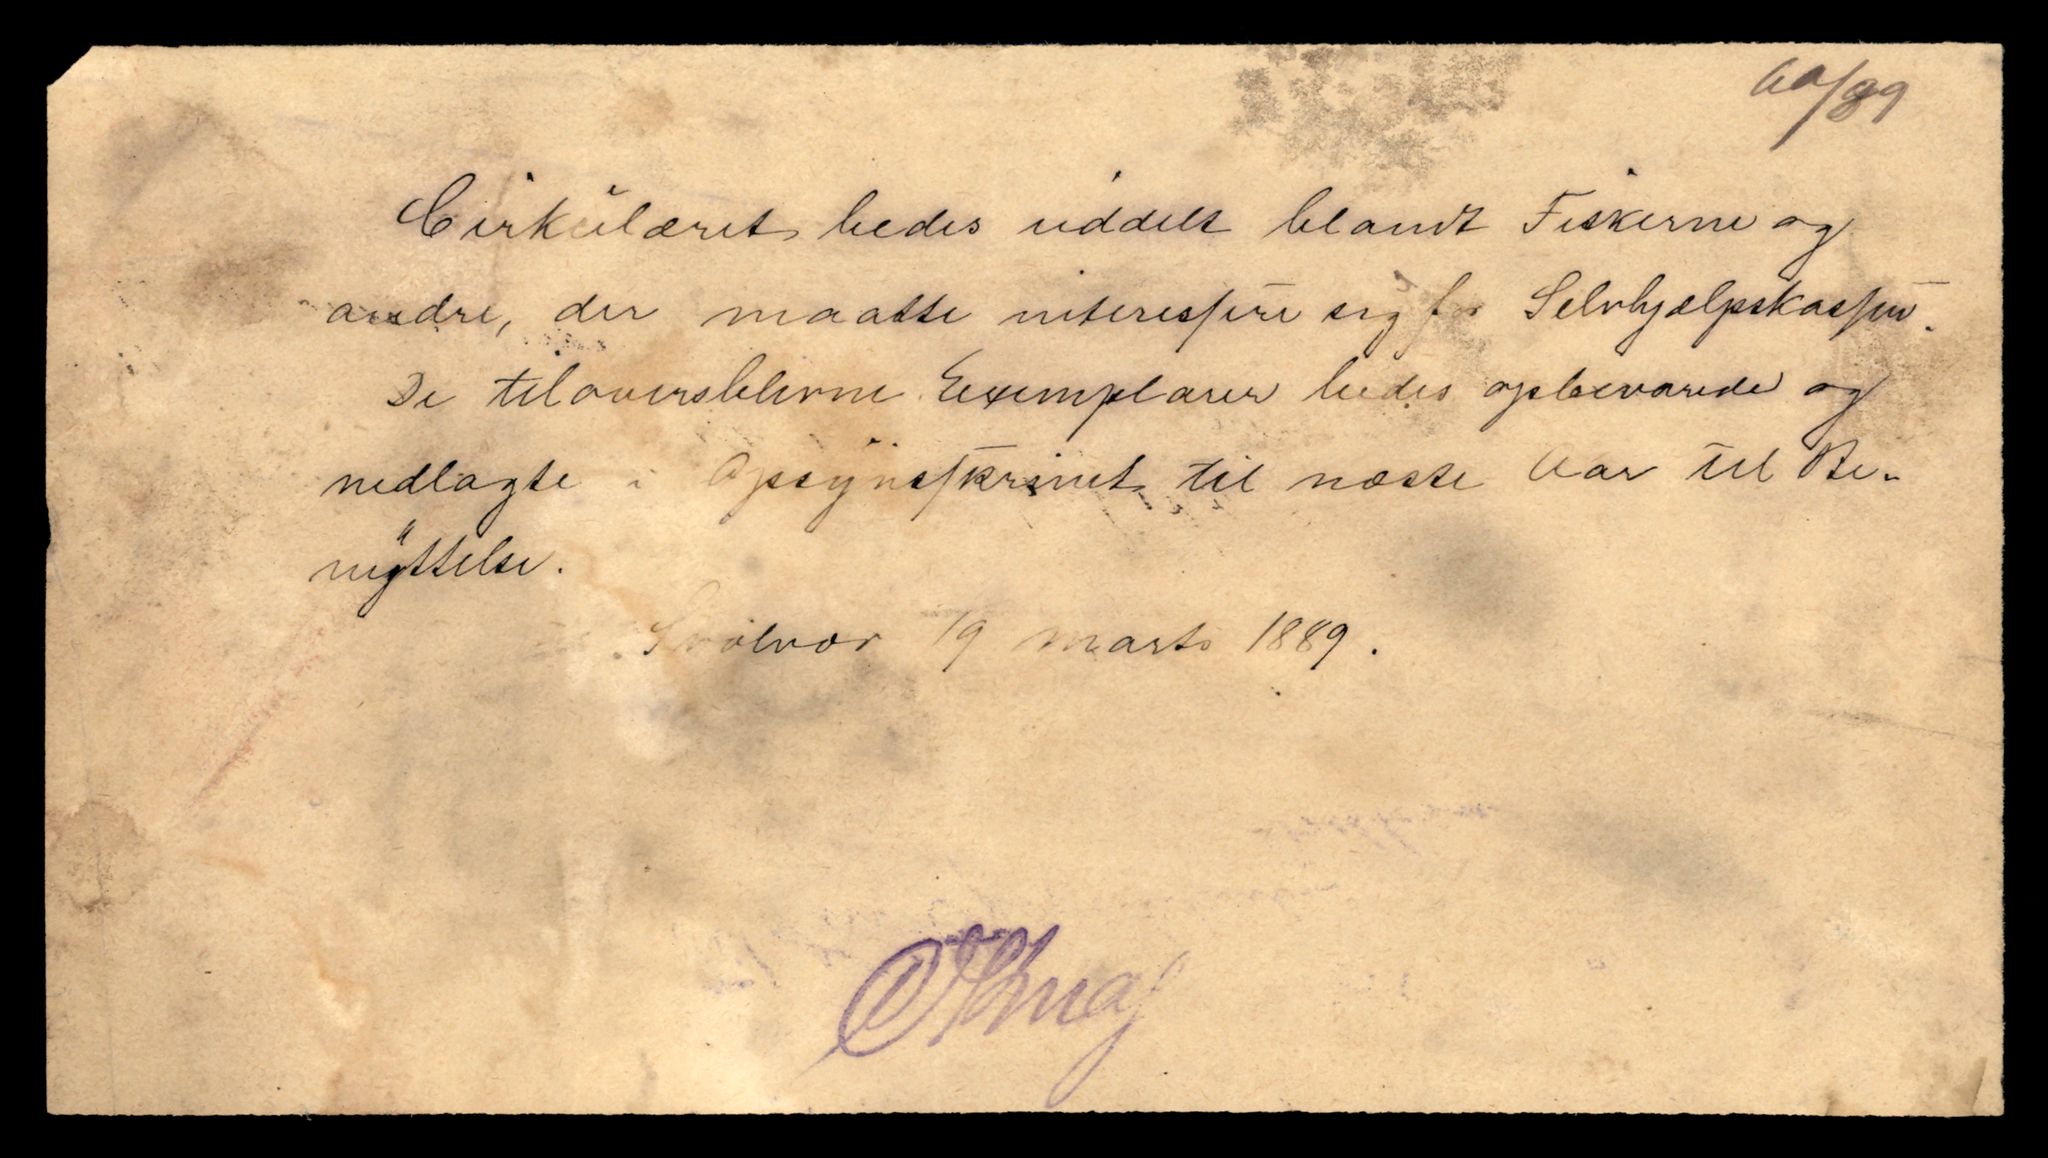 60/89
Cirkulæret bedes uddelt blandt Fiskerne og
andre, der maatte interessere sig for Selvhjælpskassen.
De tiloversblevne Exemplarer bedes opbevarede og
nedlagte i Opsynsskrinet til næste Aar til Be-
nyttelse.
Svolvær 19 Marts 1889.